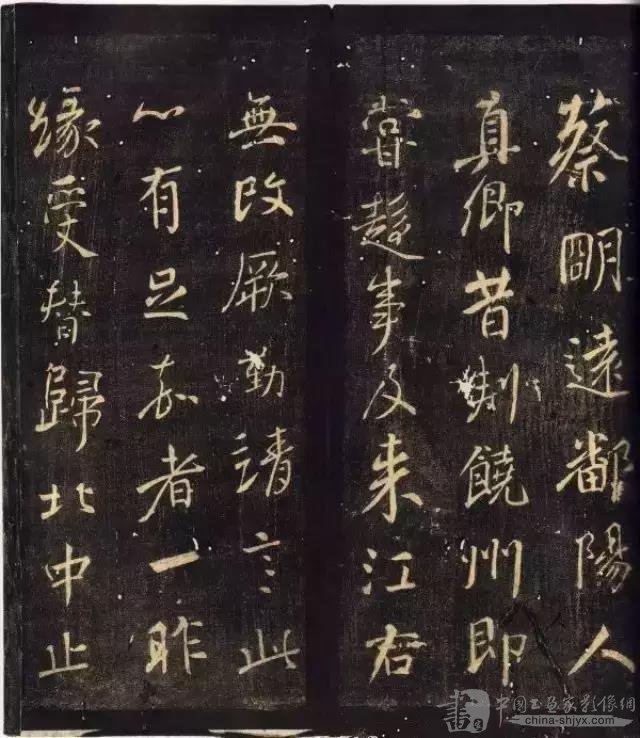 蔡朙遠鄱陽人
真卿昔刺饒州即
嘗趨事及来江右
無改厥勤靖言此
心有足嘉者一昨
緣受替歸北中止
中國書畫家影像網
china-shjyx.com